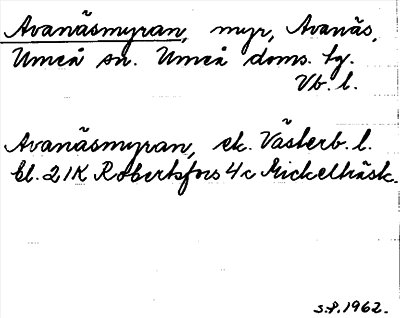 Avanäsmyran, myr, Avanäs,
Umeå sn. Umeå doms. tg.
Vb. l.
Avanäsmyran, ek. Västerb. l.
bl. 21K Robertsfors 4c Mickelträsk.
s.f. 1962.